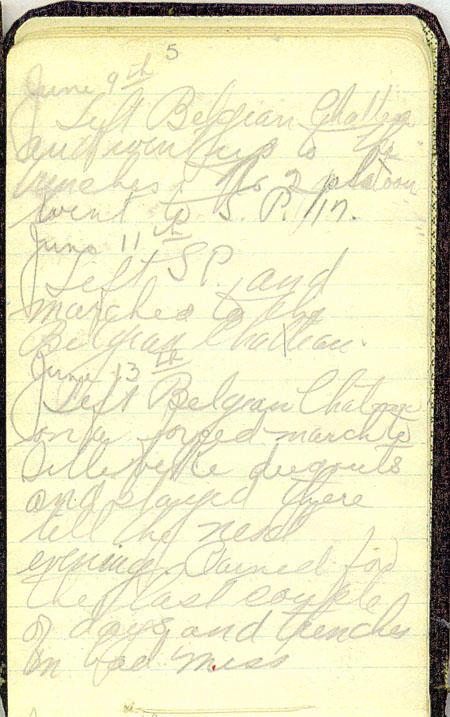 5
June 9th
Left Belgian Chattea
and went up to the
trenches. No 2 platoon
went to S. P. 17.
June 11th
Left S P. and
marched to the
Belgian Chatteau.
June 13th
Left Belgian Chateau
on a forged march to
dugouts
and stayed there
till the next
evening. Rained for
the last couple
of days and trenches
in bad miss